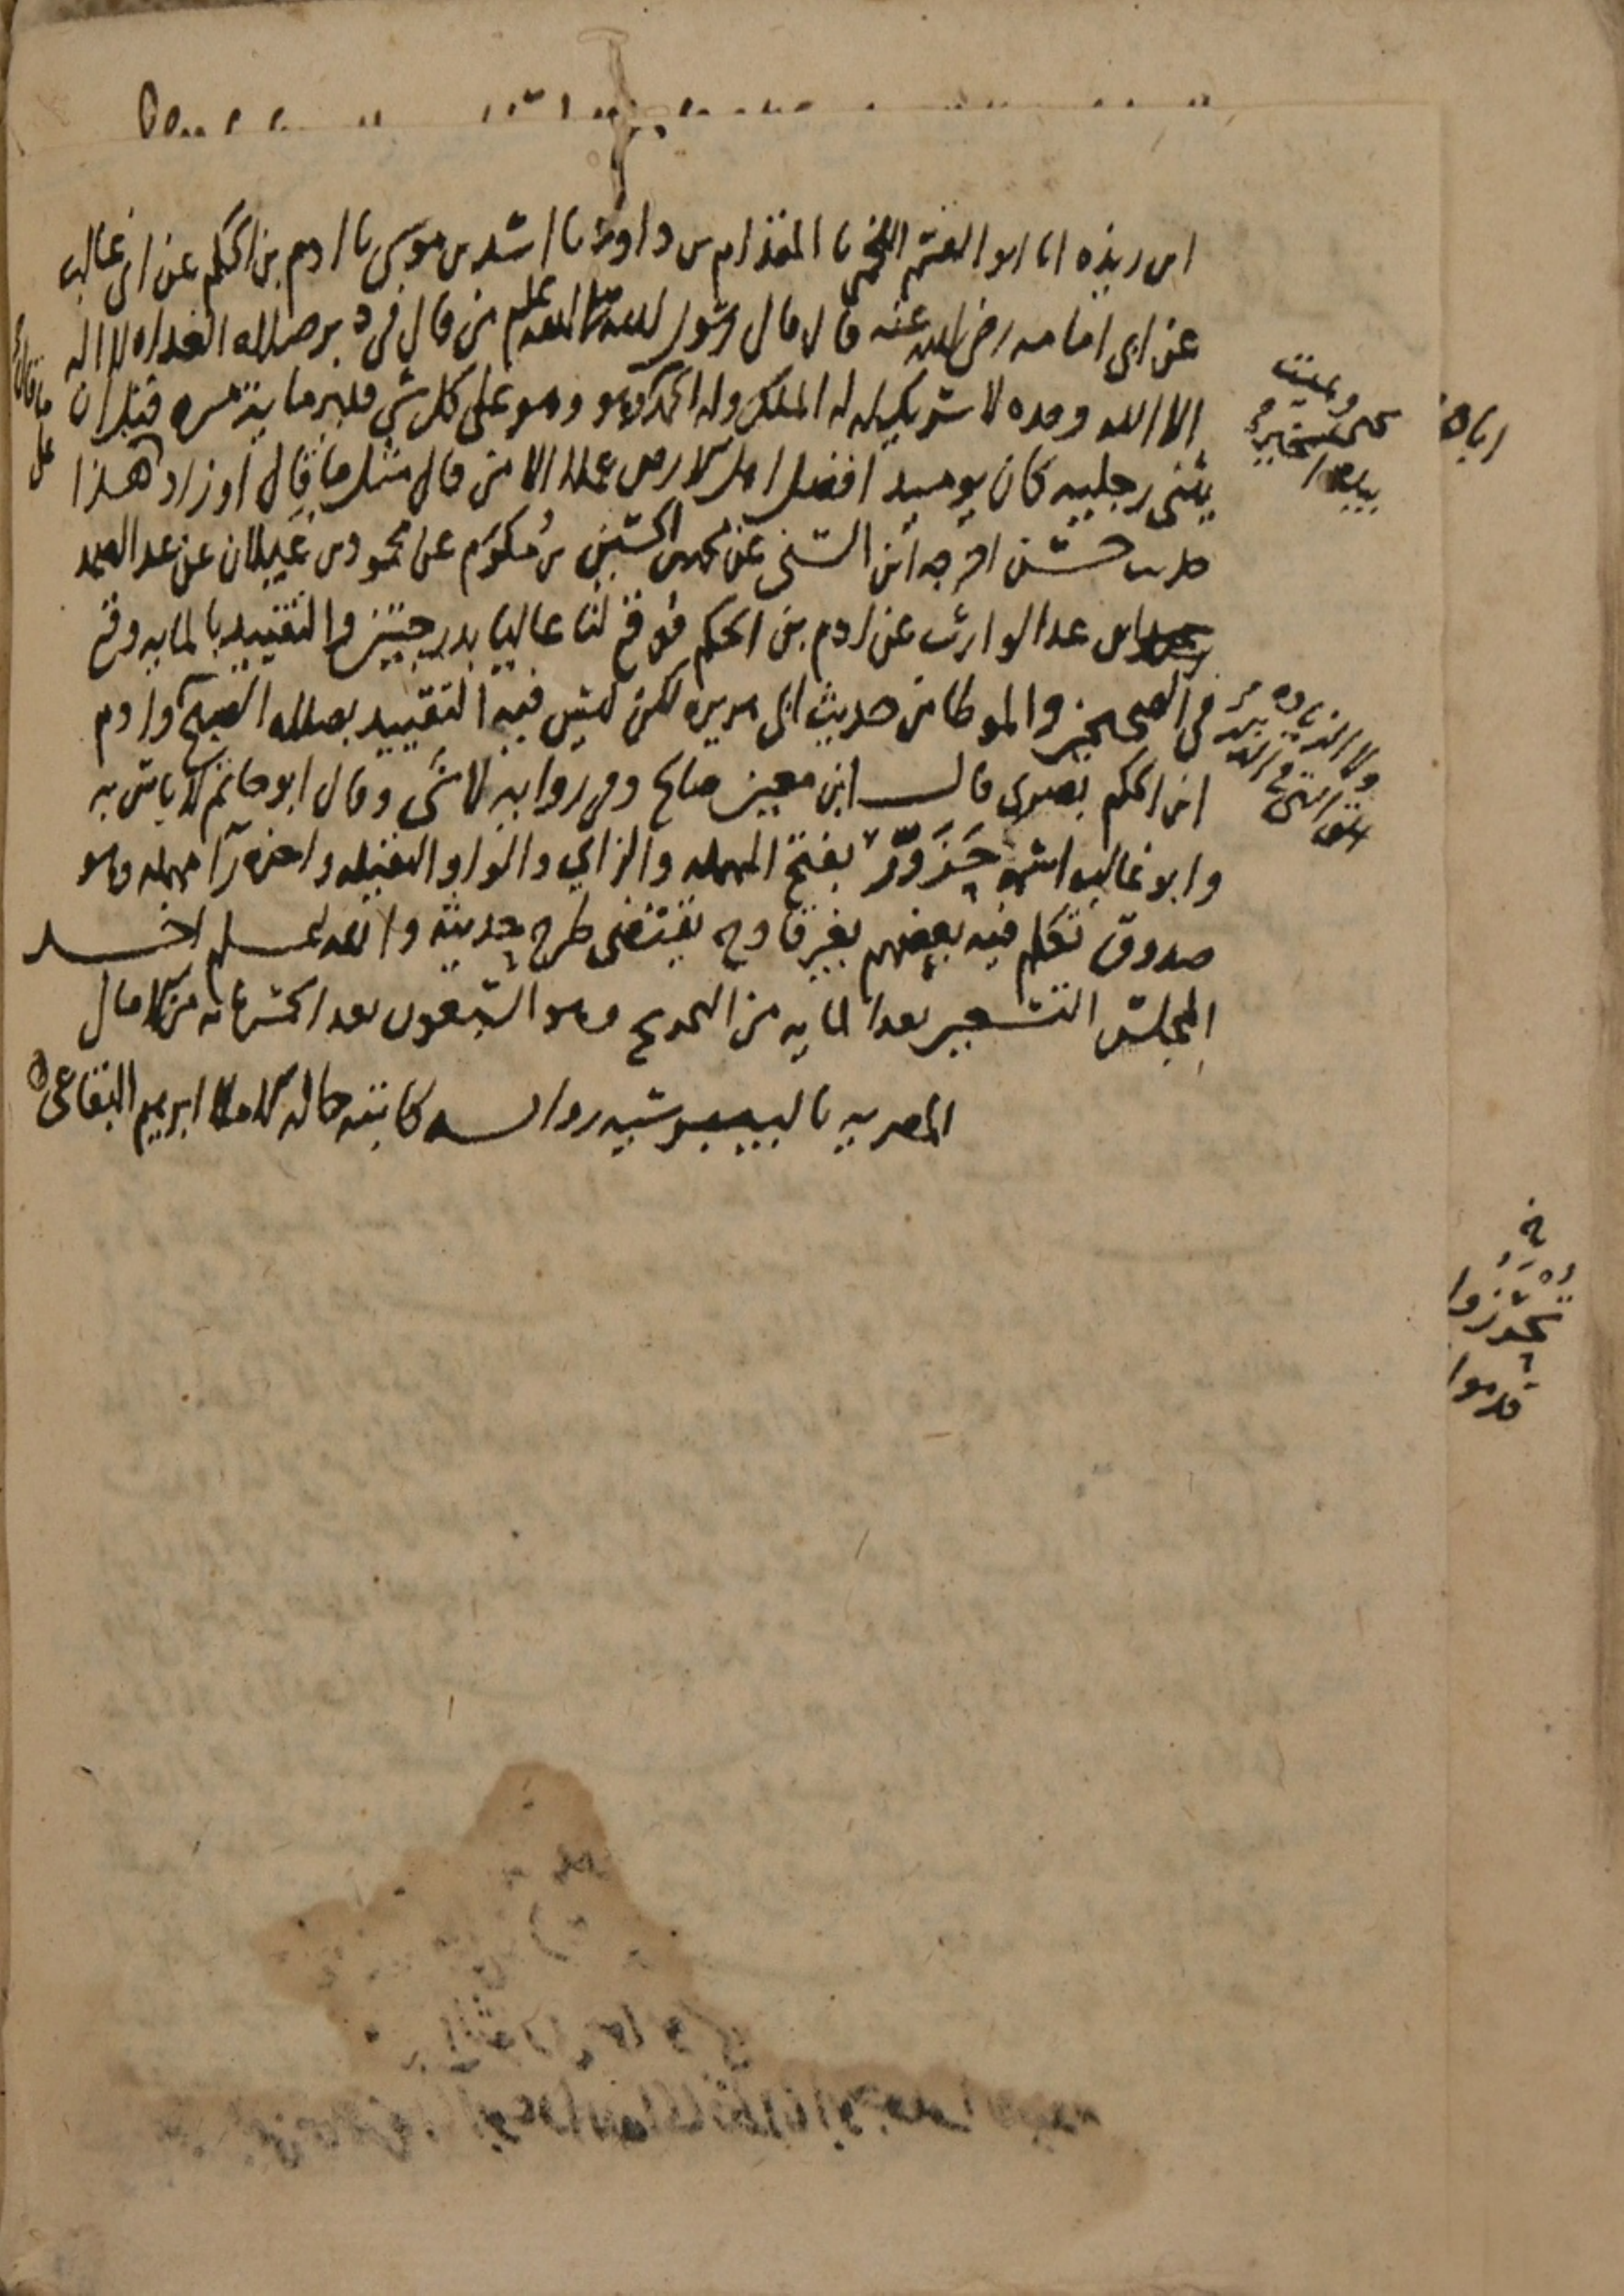 ابن ريذه انا ابو القسم اللخمي نا المقدام بن داود نا اسد بن موسى نا ادم بن الحكم عن ابي غالب
عن ابي امامه رضي الله عنه قال قال رسول الله صلى الله عليه وسلم من قال في دبر صلاه الغداه لا اله
الا الله وحده لا شريك له له الملك وله الحمد وهو على كل شي قدير مايه مره قبل ان
يثني رجليه كان يوميذ افضل اهل الارض عملا الا من قال مثل ما قال او زاد هذا
حديث حسن اخرجه ابن السني عن محمد بن الحسين بن مكرم عن محمود بن غيلان عن عبد الصمد
ابن عبد الوارث عن ادم بن الحكم فوقع لنا عاليا بدرجتين والتقييد بالمايه وقع
في الصحيحين والموطا من حديث ابي هريره لكن ليس فيه التقييد بصلاه الصبح وادم
ابن الحكم بصري قال ابن معين صالح وفي روايه لا شي وقال ابو حاتم لا باس به
وابو غالب اسمه حَزَوَّر بفتح المهمله والزاي والواو الثقيله واخره را مهمله وهو
صدوق تكلم فيه بعضهم بغير قادح يقتضي طرح حديثه والله اعلم اخر
المجلس التسعين بعد المايه من التخريج وهو التسعون بعد الخمسمائه من الامالي
المصريه بالبيبرسيه روايه كاتبه حاله الاملا ابرهيم البقاعي
ويميت
قدموا